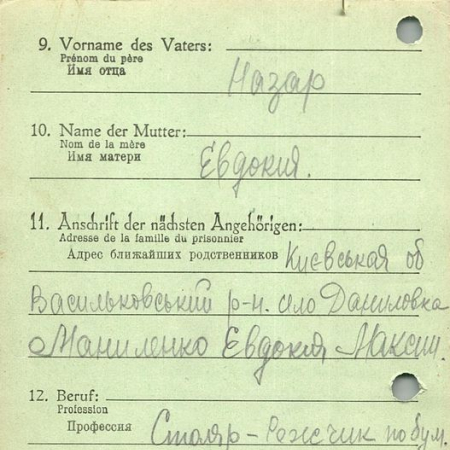 9. Vorname des Vaters:
Prénom du père
Имя отца
Назар
10. Name der Mutter:
Nom de la mère
Имя матери
Евдокия.
11. Anschrift der nächsten Angehörigen:
Adresse de la famille du prisonnier
Адрес ближайших родственников Києвськая об
Васильковський р-н. село Даниловка
Маниленко Евдокия Максим.
12. Beruf:
Profession
Профессия Столяр - Режсчик по бум.